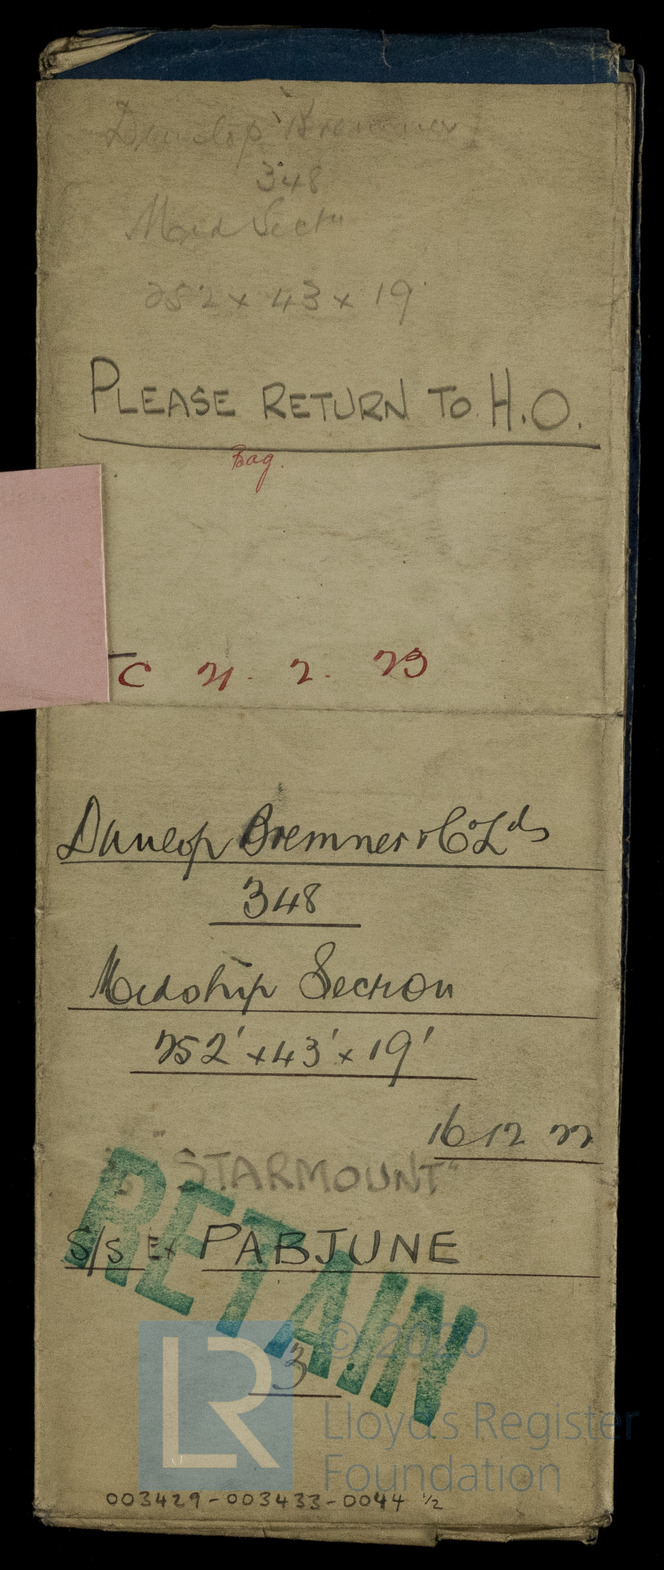 Dunlop Bremner
348
Mid Sectn
252 x 43 x 19'
PLEASE RETURN TO H.O.
Bag.
C 21. 2. 23
Dunlop Bremner & Co Ld
348
Midship Section
252' x 43' x 19'
16 12 22
"STARMOUNT"
S/S Ex PABJUNE
RETAIN
3
LR
© 2020
Lloyd's Register
Foundation
003429-003433-0044 1/2